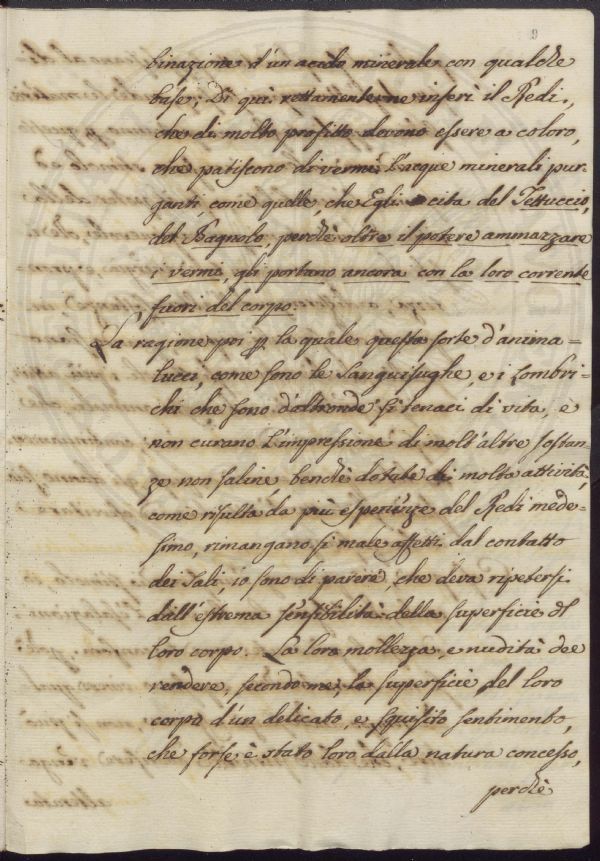 9
binazione d'un acido minerale con qualche
base; Di qui rettamente ne inferì il Redi,
che di molto profitto devono essere a coloro,
che patiscono di vermi l'acque minerali pur-
ganti, come quelle, che Egli cita del Tettuccio,
del Bagnolo, perchè oltre il potere ammazzare
i vermi, gli portano ancora con la loro corrente
fuori del corpo.
La ragione poi p la quale questa sorte d'anima=
lucci, come sono le Sanguisughe, e i Lombri-
chi che sono d'altronde sì tenaci di vita, e
non curano l'impressione di molt'altre sostan-
ze non saline, benchè dotate di molta attività,
come risulta da più esperienze del Redi mede-
simo, rimangano sì male affetti dal contatto
dei Sali, io sono di parere, che deva ripetersi
dall'estrema sensibilità della superficie dl
loro corpo. La loro mollezza, e nudità dee
rendere, secondo me, la superficie del loro
corpo d'un delicato, e squisito sentimento,
che forse è stato loro dalla natura concesso,
perchè